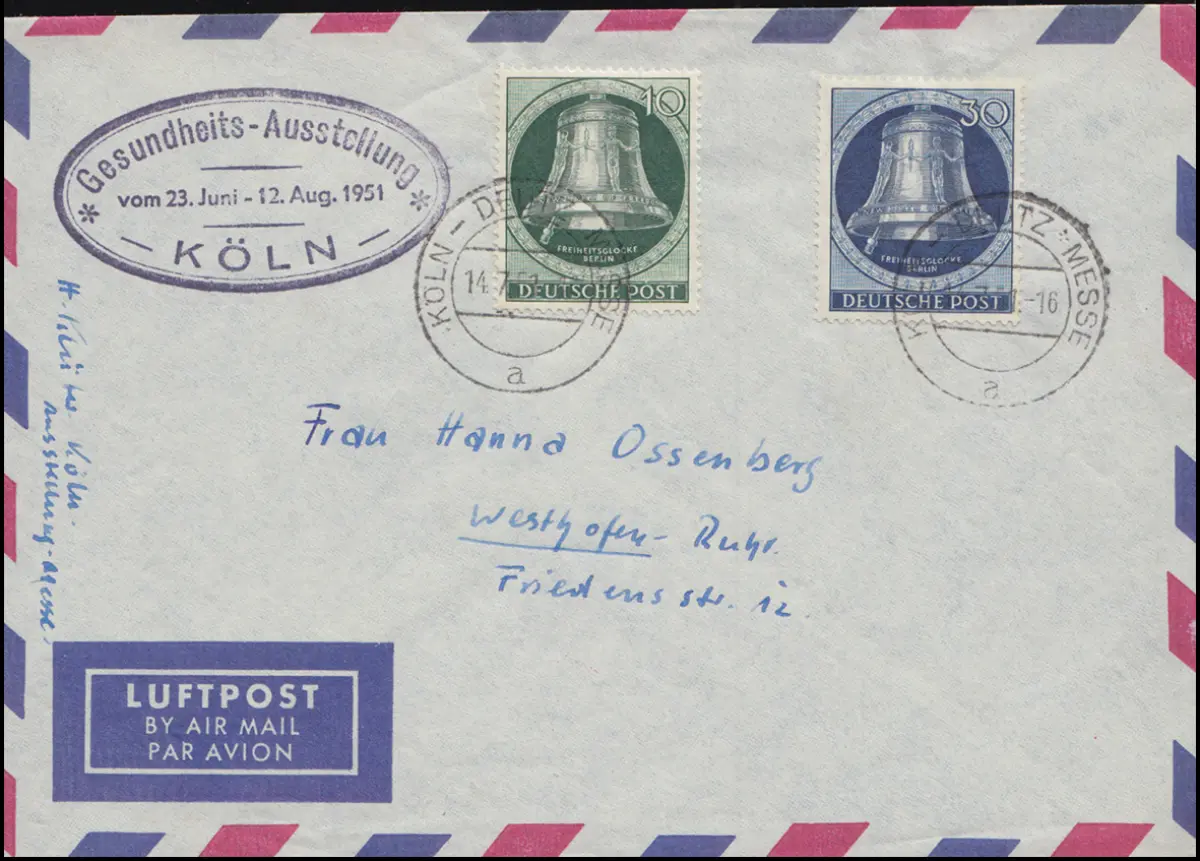 Gesundheits-Ausstellung
vom 23. Juni - 12. Aug. 1951
* KÖLN *
10
FREIHEITSGLOCKE
BERLIN
DEUTSCHE POST
30
FREIHEITSGLOCKE
BERLIN
DEUTSCHE POST
KÖLN - DEUTZ MESSE
14.7.51
a
DEUTZ * MESSE
-16
a
Frau Hanna Ossenberg
Westhofen - Ruhr.
Friedensstr. 12
Köln.
Ausstellung-Messe.
LUFTPOST
BY AIR MAIL
PAR AVION